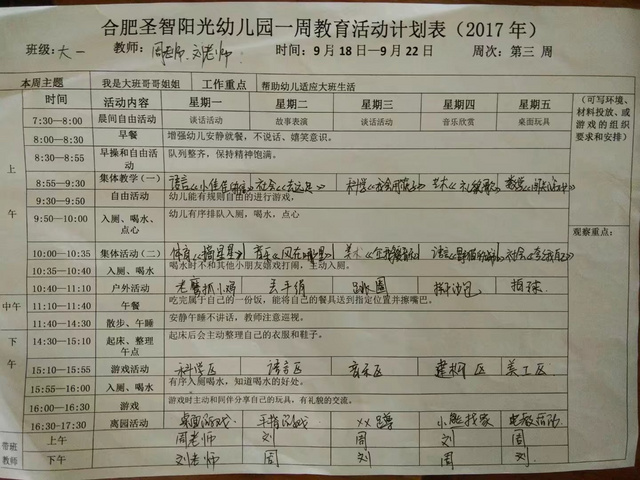 合肥圣智阳光幼儿园一周教育活动计划表（2017 年）
班级: 大一 教师: 周老师、刘老师 时间: 9 月 18日—9 月 22 日 周次: 第三 周
本周主题 我是大班哥哥姐姐 工作重点 帮助幼儿适应大班生活
时间 活动内容 星期一 星期二 星期三 星期四 星期五 （可写环境、材料投放、或游戏的组织要求和安排）
上午
7:30—8:00 晨间自由活动 谈话活动 故事表演 谈话活动 音乐欣赏 桌面玩具
8:00—8:30 早餐 增强幼儿安静就餐，不说话、嬉笑意识。
8:30—8:55 早操和自由活动 队列整齐，保持精神饱满。
8:55—9:30 集体教学（一） 语言 社会 科学 艺术 数学
9:30—9:50 自由活动 幼儿能有规则自由的进行游戏，
9:50—10:00 入厕、喝水、点心 幼儿有序排队入厕，喝水，点心
观察重点：
10:00—10:35 集体活动（二） 体育《摘星星》 音乐《风在哪里》 美术 语言 社会
10:35—10:40 入厕、喝水 喝水时不和其他小朋友嬉戏打闹，主动入厕。
10:40—11:10 户外活动 老鹰抓小鸡 丢手绢 跳圈 拍球
中午
11:10—11:40 午餐 吃完属于自己的一份饭，能将自己的餐具送到指定位置并擦嘴巴。
11:40—14:30 散步、午睡 安静午睡不讲话，教师注意巡视。
下午
14:30—15:10 起床、整理午点 起床后会主动整理自己的衣服和鞋子。
15:10—15:55 游戏活动 科学区 语言区 音乐区 建构区 美工区
15:55—16:00 入厕、喝水 有序入厕喝水，知道喝水的好处。
16:00—16:30 游戏 游戏时主动和同伴分享自己的玩具，有礼貌的交流。
16:30-17:30 离园活动 桌面游戏 手指游戏 小熊找家
带班教师
上午 周老师 刘 周 刘 周
下午 刘老师 周 刘 周 刘